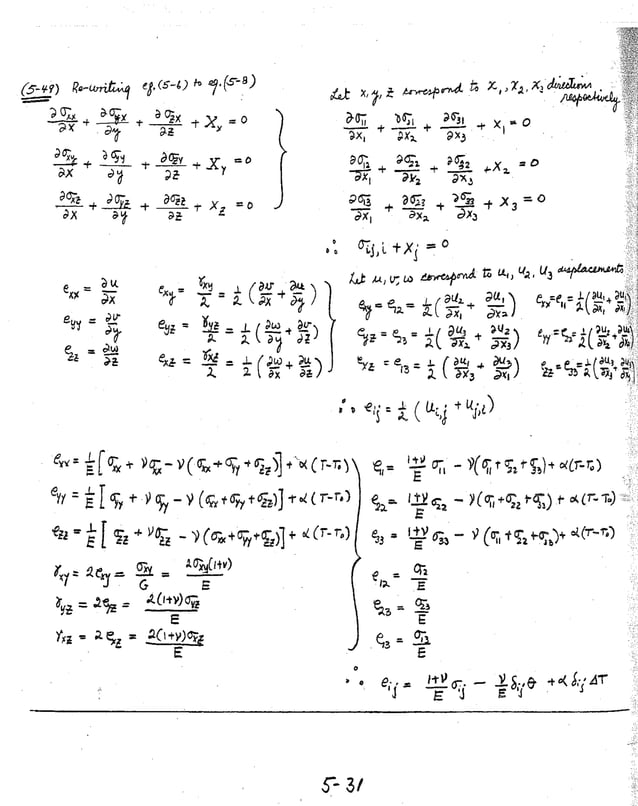 (5-49) Re-writing eq.(5-6) to eq.(5-8)
∂σxx/∂x + ∂σyx/∂y + ∂σzx/∂z + Xx = 0
∂σxy/∂x + ∂σyy/∂y + ∂σzy/∂z + Xy = 0
∂σxz/∂x + ∂σyz/∂y + ∂σzz/∂z + Xz = 0
Let x, y, z correspond to x1, x2, x3 directions
respectively
∂σ11/∂x1 + ∂σ21/∂x2 + ∂σ31/∂x3 + X1 = 0
∂σ12/∂x1 + ∂σ22/∂x2 + ∂σ32/∂x3 + X2 = 0
∂σ13/∂x1 + ∂σ23/∂x2 + ∂σ33/∂x3 + X3 = 0
∴ σij,i + Xj = 0
exx = ∂u/∂x exy = γxy/2 = 1/2 (∂v/∂x + ∂u/∂y)
eyy = ∂v/∂y eyz = γyz/2 = 1/2 (∂w/∂y + ∂v/∂z)
ezz = ∂w/∂z exz = γxz/2 = 1/2 (∂w/∂x + ∂u/∂z)
Let u, v, w correspond to u1, u2, u3 displacements
exy = e12 = 1/2 (∂u2/∂x1 + ∂u1/∂x2) exx = e11 = 1/2 (∂u1/∂x1 + ∂u1/∂x1)
eyz = e23 = 1/2 (∂u3/∂x2 + ∂u2/∂x3) eyy = e22 = 1/2 (∂u2/∂x2 + ∂u2/∂x2)
exz = e13 = 1/2 (∂u1/∂x3 + ∂u3/∂x1) ezz = e33 = 1/2 (∂u3/∂x3 + ∂u3/∂x3)
∴ eij = 1/2 (ui,j + uj,i)
exx = 1/E [σxx + νσxx − ν(σxx + σyy + σzz)] + α(T−T0)
eyy = 1/E [σyy + νσyy − ν(σxx + σyy + σzz)] + α(T−T0)
ezz = 1/E [σzz + νσzz − ν(σxx + σyy + σzz)] + α(T−T0)
γxy = 2exy = σxy/G = 2σxy(1+ν)/E
γyz = 2eyz = 2(1+ν)σyz/E
γxz = 2exz = 2(1+ν)σxz/E
e11 = 1+ν/E σ11 − ν(σ11 + σ22 + σ33) + α(T−T0)
e22 = 1+ν/E σ22 − ν(σ11 + σ22 + σ33) + α(T−T0)
e33 = 1+ν/E σ33 − ν(σ11 + σ22 + σ33) + α(T−T0)
e12 = σ12/E
e23 = σ23/E
e13 = σ13/E
∴ eij = 1+ν/E σij − ν/E δij θ + α δij ΔT
5-31